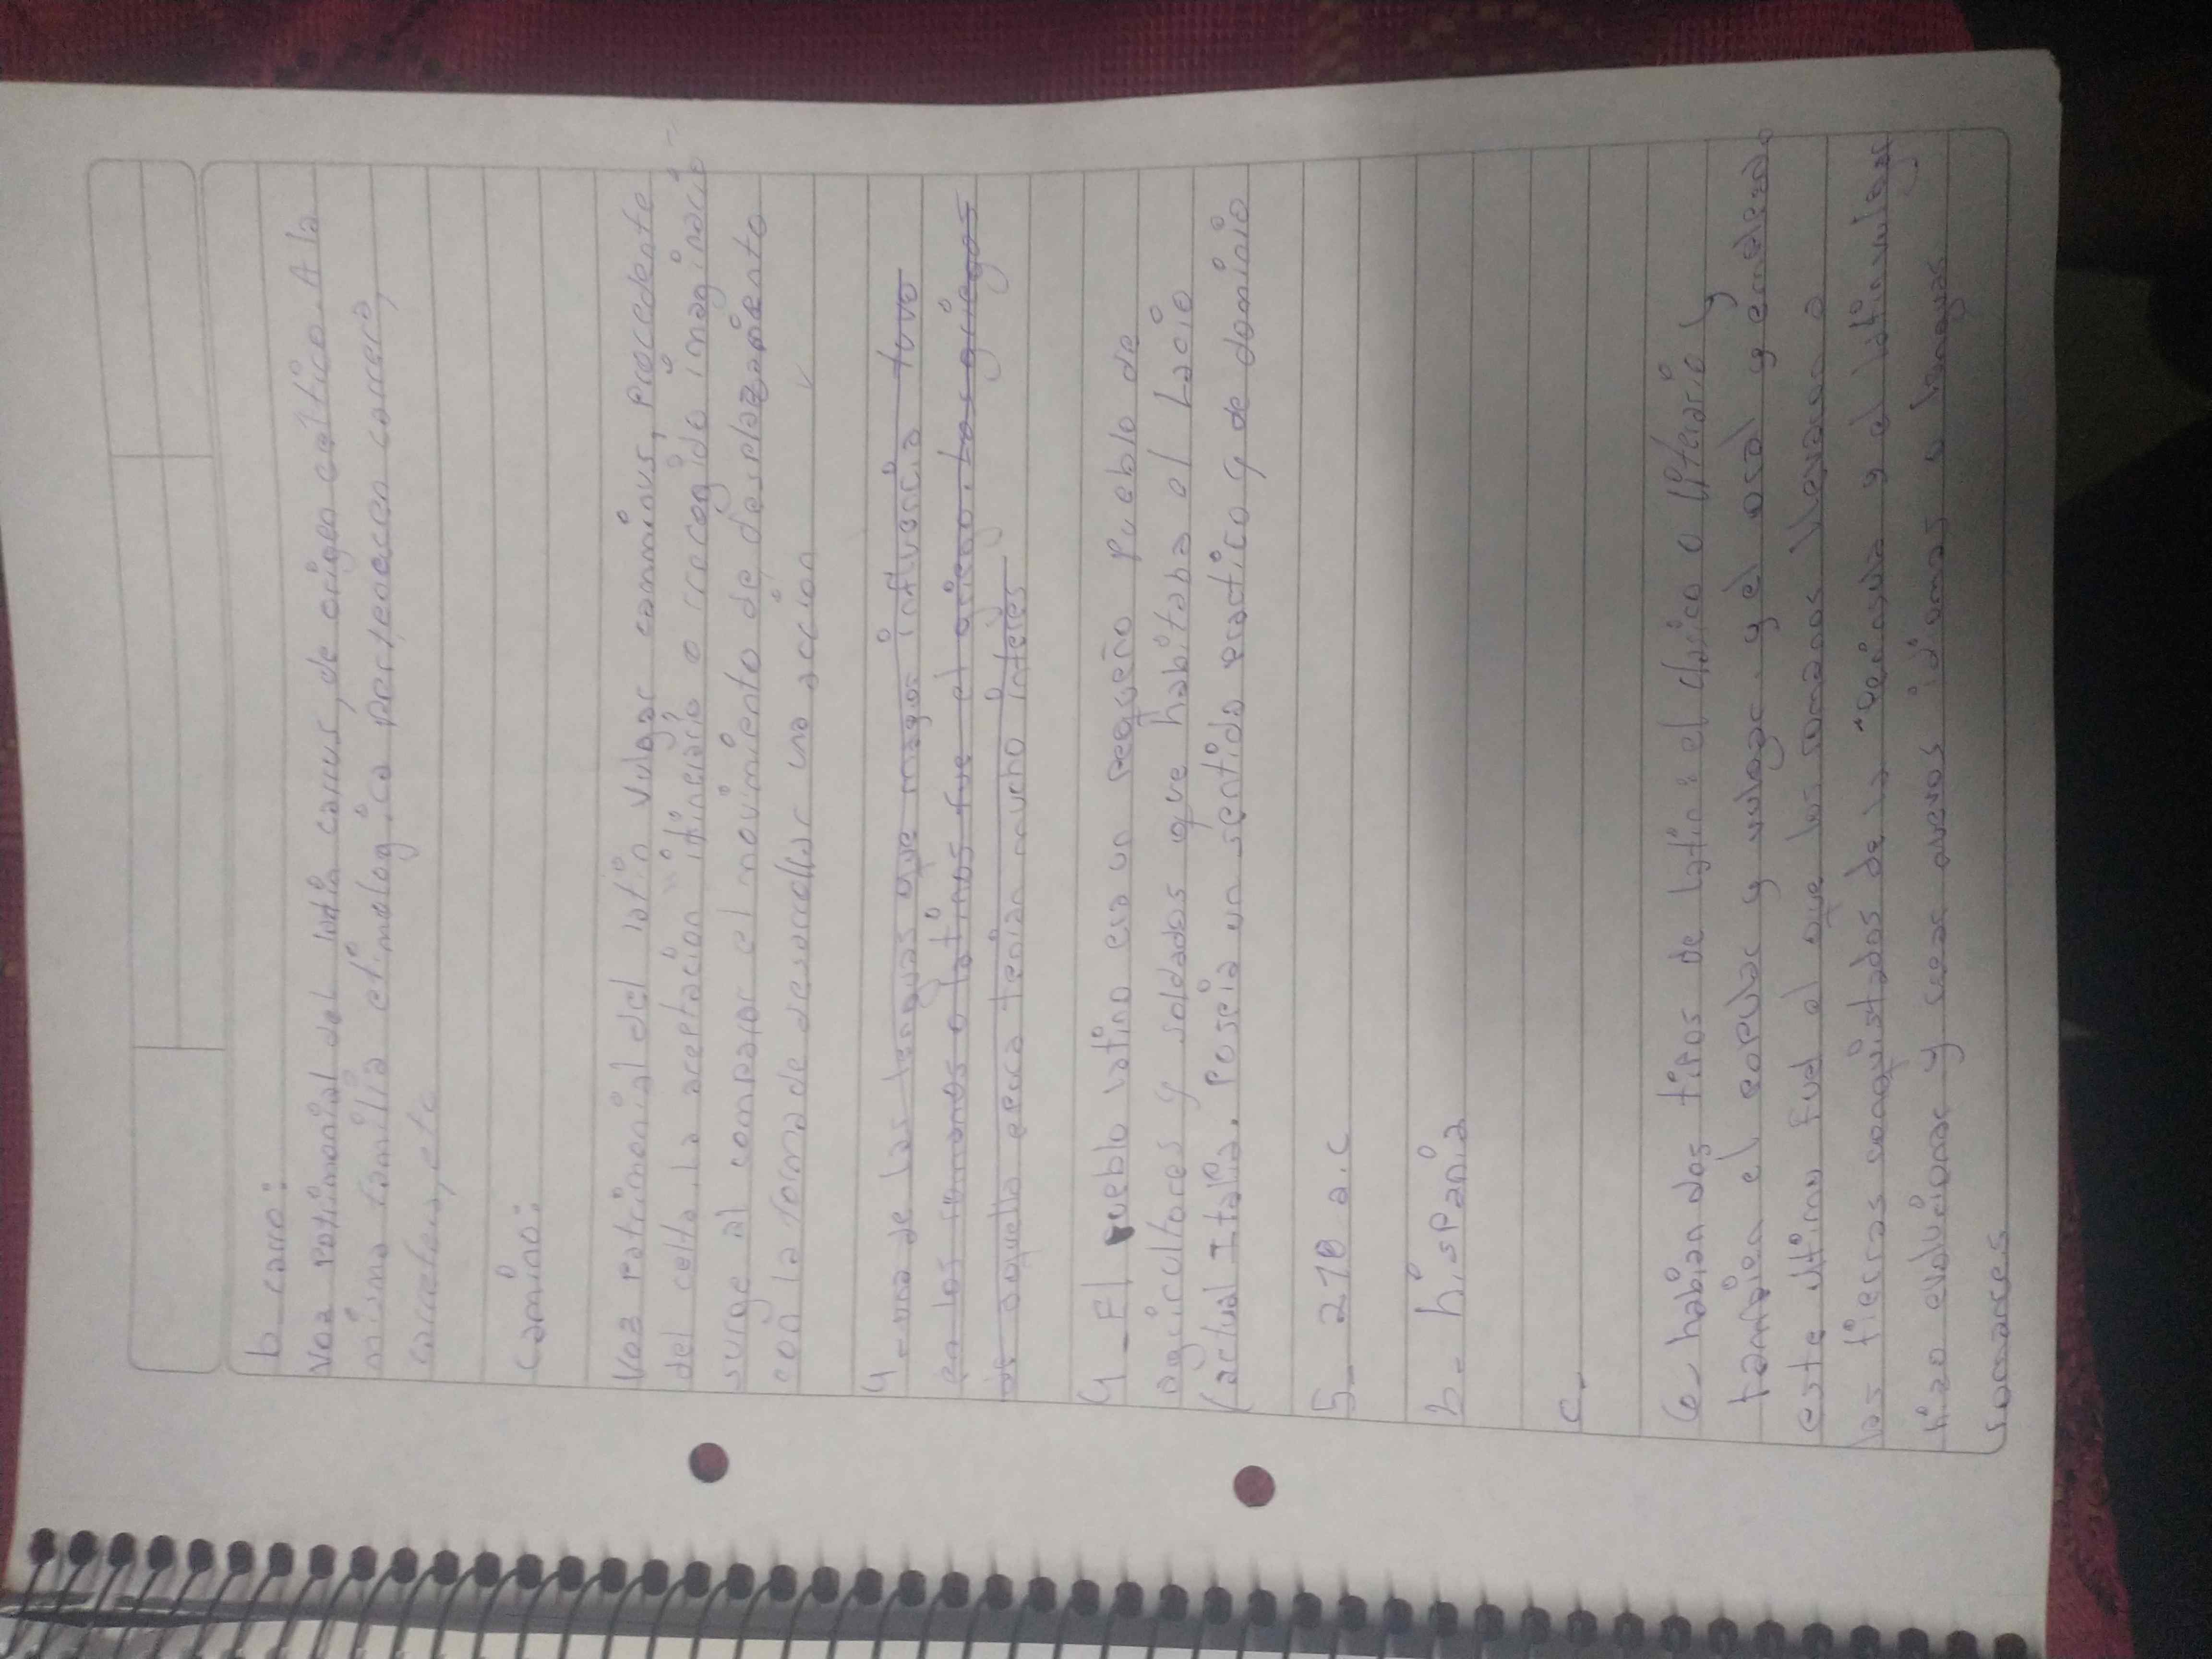 b_ carro:
Voz patrimonial del latín carrus, de origen celtico. A la
misma familia etimologica pertenecen carrera,
carretera, etc
Camino:
Voz patrimonial del latin vulgar camminus, procedente
del celta. la aceptación itinerario o recogido imaginacio
surge al comparar el movimiento de desplazamiento
con la forma de desarrollar una acción
4_ una de las lenguas que mayor influencia tuvo
en los romanos o latinos fue el griego. Los griegos
de aquella epoca tenian mucho interes
4_ El pueblo latino era un pequeño pueblo de
agricultores y soldados que habitaba el Lacio
(actual Italia. Poseia un sentido practico y de dominio
5_ 218 a.c
b_ hispania
c_
6_ habian dos tipos de latin: el clasico o literario y
tambien el popular y vulgar. y el oral y empleado
este ultimo fue el que los romanos llevaron a
las tierras conquistadas de la Peninsula y el latin vulgar
hizo evolucionar y crear nuevos idiomas o lenguas
romances